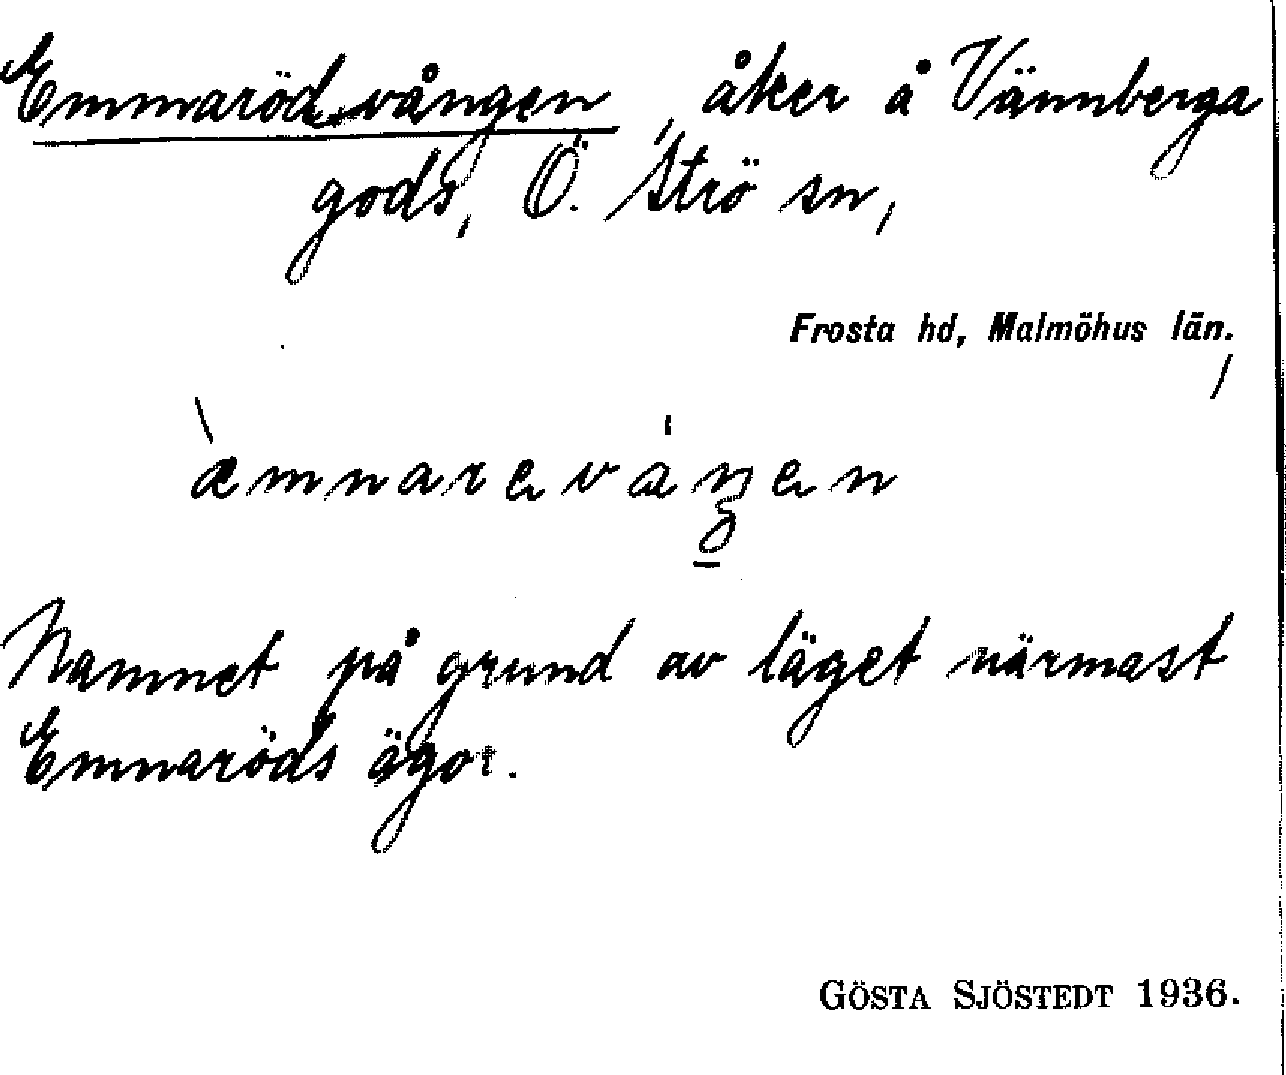 Emmarödvången, åker å Vännberga
gods, Ö. Strö sn,
Frosta hd, Malmöhus län.
Namnet på grund av läget närmast
Emmaröds ägor.
GÖSTA SJÖSTEDT 1936.